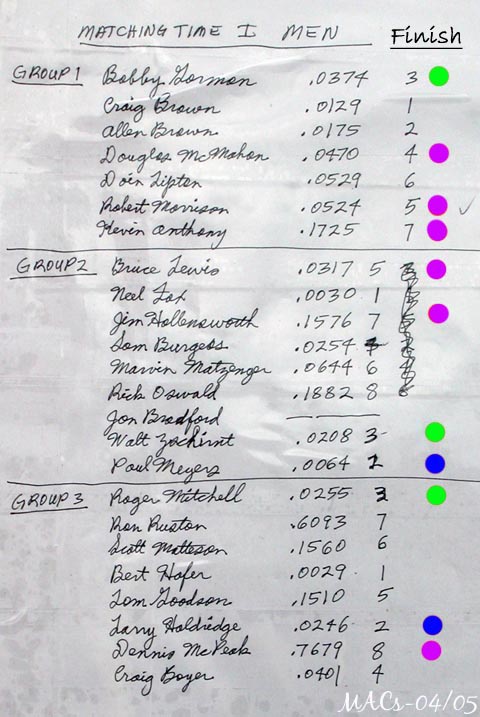 MATCHING TIME I MEN Finish
GROUP 1 Bobby Gorman .0374 3
Craig Brown .0129 1
Allen Brown .0175 2
Douglas McMahon .0470 4
Doin Lipten .0529 6
Robert Morrison .0524 5 ✓
Kevin Anthony .1725 7
GROUP 2 Bruce Lewis .0317 5
Neel Fox .0030 1
Jim Hollensworth .1576 7
Sam Burgess .0254
Marvin Matzenger .0644 6
Rick Oswald .1882 8
Jon Bradford
Walt .0208 3
Paul Meyers .0064 2
GROUP 3 Roger Mitchell .0255 3
Ron Ruston .6093 7
Scott Matteson .1560 6
Bert Hafer .0029 1
Tom Goodson .1510 5
Larry Holdridge .0246 2
Dennis McPeak .7679 8
Craig Boyer .0401 4
MACs-04/05